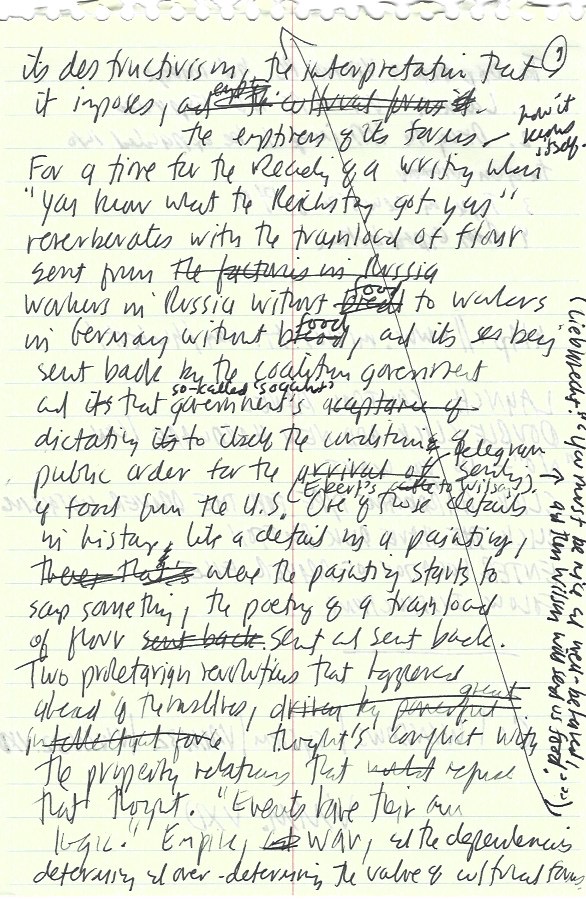 its destructivism, the interpretation that
it imposes, and
the emptiness of its forms
how it
itself.
For a time for the Ready of a writing when
"you know what the Reichstag got you"
reverberates with the trainload of flour
sent from the factories in Russia
workers in Russia without bread food to workers
in Germany without bread food, and its being
sent back by the coalition government
so-called 'socialist'
and its that government's acceptance of
dictating its to itself the conditions of
telegram
public order for the arrival of sending
(Ebert's to Wilson)
of food from the U.S. One of those details
in history, like a detail in a painting,
there, that's where the painting starts to
say something, the poetry of a trainload
of flour sent back. sent and sent back.
Two proletarian revolutions that happened
ahead of themselves, driven by powerful great
intellectual force thought's conflict with
the property relations that refuse
that thought. "Events have their own
logic." Empire, war, all the dependencies
determining and over-determining the value of cultural forms,
(Liebknecht: "You must be nice and
and then Wilson will send us food.")